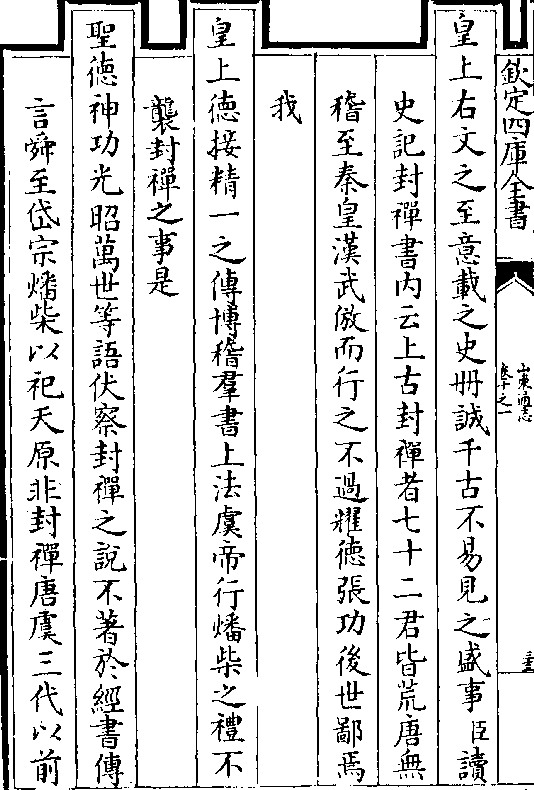 欽定四庫全書
山東通志
卷十之一
皇上右文之至意載之史冊誠千古不易見之盛事臣讀
史記封禪書內云上古封禪者七十二君皆荒唐無
稽至秦皇漢武倣而行之不過耀德張功後世鄙焉
我
皇上德接精一之傳博稽羣書上法虞帝行燔柴之禮不
襲封禪之事是
聖德神功光昭萬世等語伏察封禪之說不著於經書傳
言舜至岱宗燔柴以祀天原非封禪唐虞三代以前